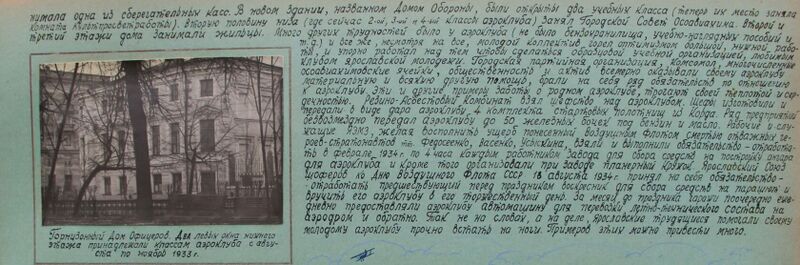 нимала одна из сберегательных касс. В новом здании, названном Домом Обороны, были открыты два учебных класса (теперь их место заняла
комната культпросветработы). Вторую половину низа (где сейчас 2-ой, 3-ий и 4-ый классы аэроклуба) занял Городской Совет Осоавиахима. Второй и
третий этажи дома занимали жильцы. Много других трудностей было у аэроклуба (не было бензохранилища, учебно-наглядных пособий и
т.д.) и все же, несмотря на все, молодой коллектив горел оптимизмом большой, нужной рабо-
ты, упорно работал над тем, чтобы сделаться образцовой учебной организацией, любимым
клубом ярославской молодежи. Городская партийная организация, Комсомол, многочисленные
осоавиахимовские ячейки, общественность и актив всемерно оказывали своему аэроклубу
материальную и всякую другую помощь, брали на себя ряд обязательств по отношению
к аэроклубу. Эти и другие примеры заботы о родном аэроклубе, трогают своей теплотой и сер-
дечностью. Резино-Асбестовый Комбинат взял шефство над аэроклубом. Шефы изготовили и
передали в виде дара аэроклубу 4 комплекта стартовых полотнищ из корда. Ряд предприятий
безвозмездно передал аэроклубу до 50 железных бочек под бензин и масло. Рабочие и слу-
жащие ЯЭМЗ, желая восполнить ущерб понесенный Воздушным Флотом смертью отважных ге-
роев-стратонавтов тт. Федосеенко, Васенко, Усыскина, взяли и выполнили обязательство - отработа-
ть в феврале 1934 г. по 4 часа каждым работником завода для сбора средств на постройку ангара
для аэроклуба и кроме того организовали при заводе планерный кружок. Ярославский Союз
шоферов ко Дню Воздушного Флота СССР 18 августа 1934 г. принял на себя обязательство -
- отработать предшествующий перед праздником воскресник для сбора средств на парашют и
вручить его аэроклубу в его торжественный день. За месяц до праздника гаражи поочередно еже-
дневно предоставляли аэроклубу автомашину для перевозки летно-технического состава на
аэродром и обратно. Так не на словах, а на деле, ярославские трудящиеся помогали своему
молодому аэроклубу прочно встать на ноги. Примеров этих можно привести много.
Гарнизонный Дом Офицеров. Два левых окна нижнего
этажа принадлежали классам аэроклуба с авгу-
ста по ноябрь 1933 г.